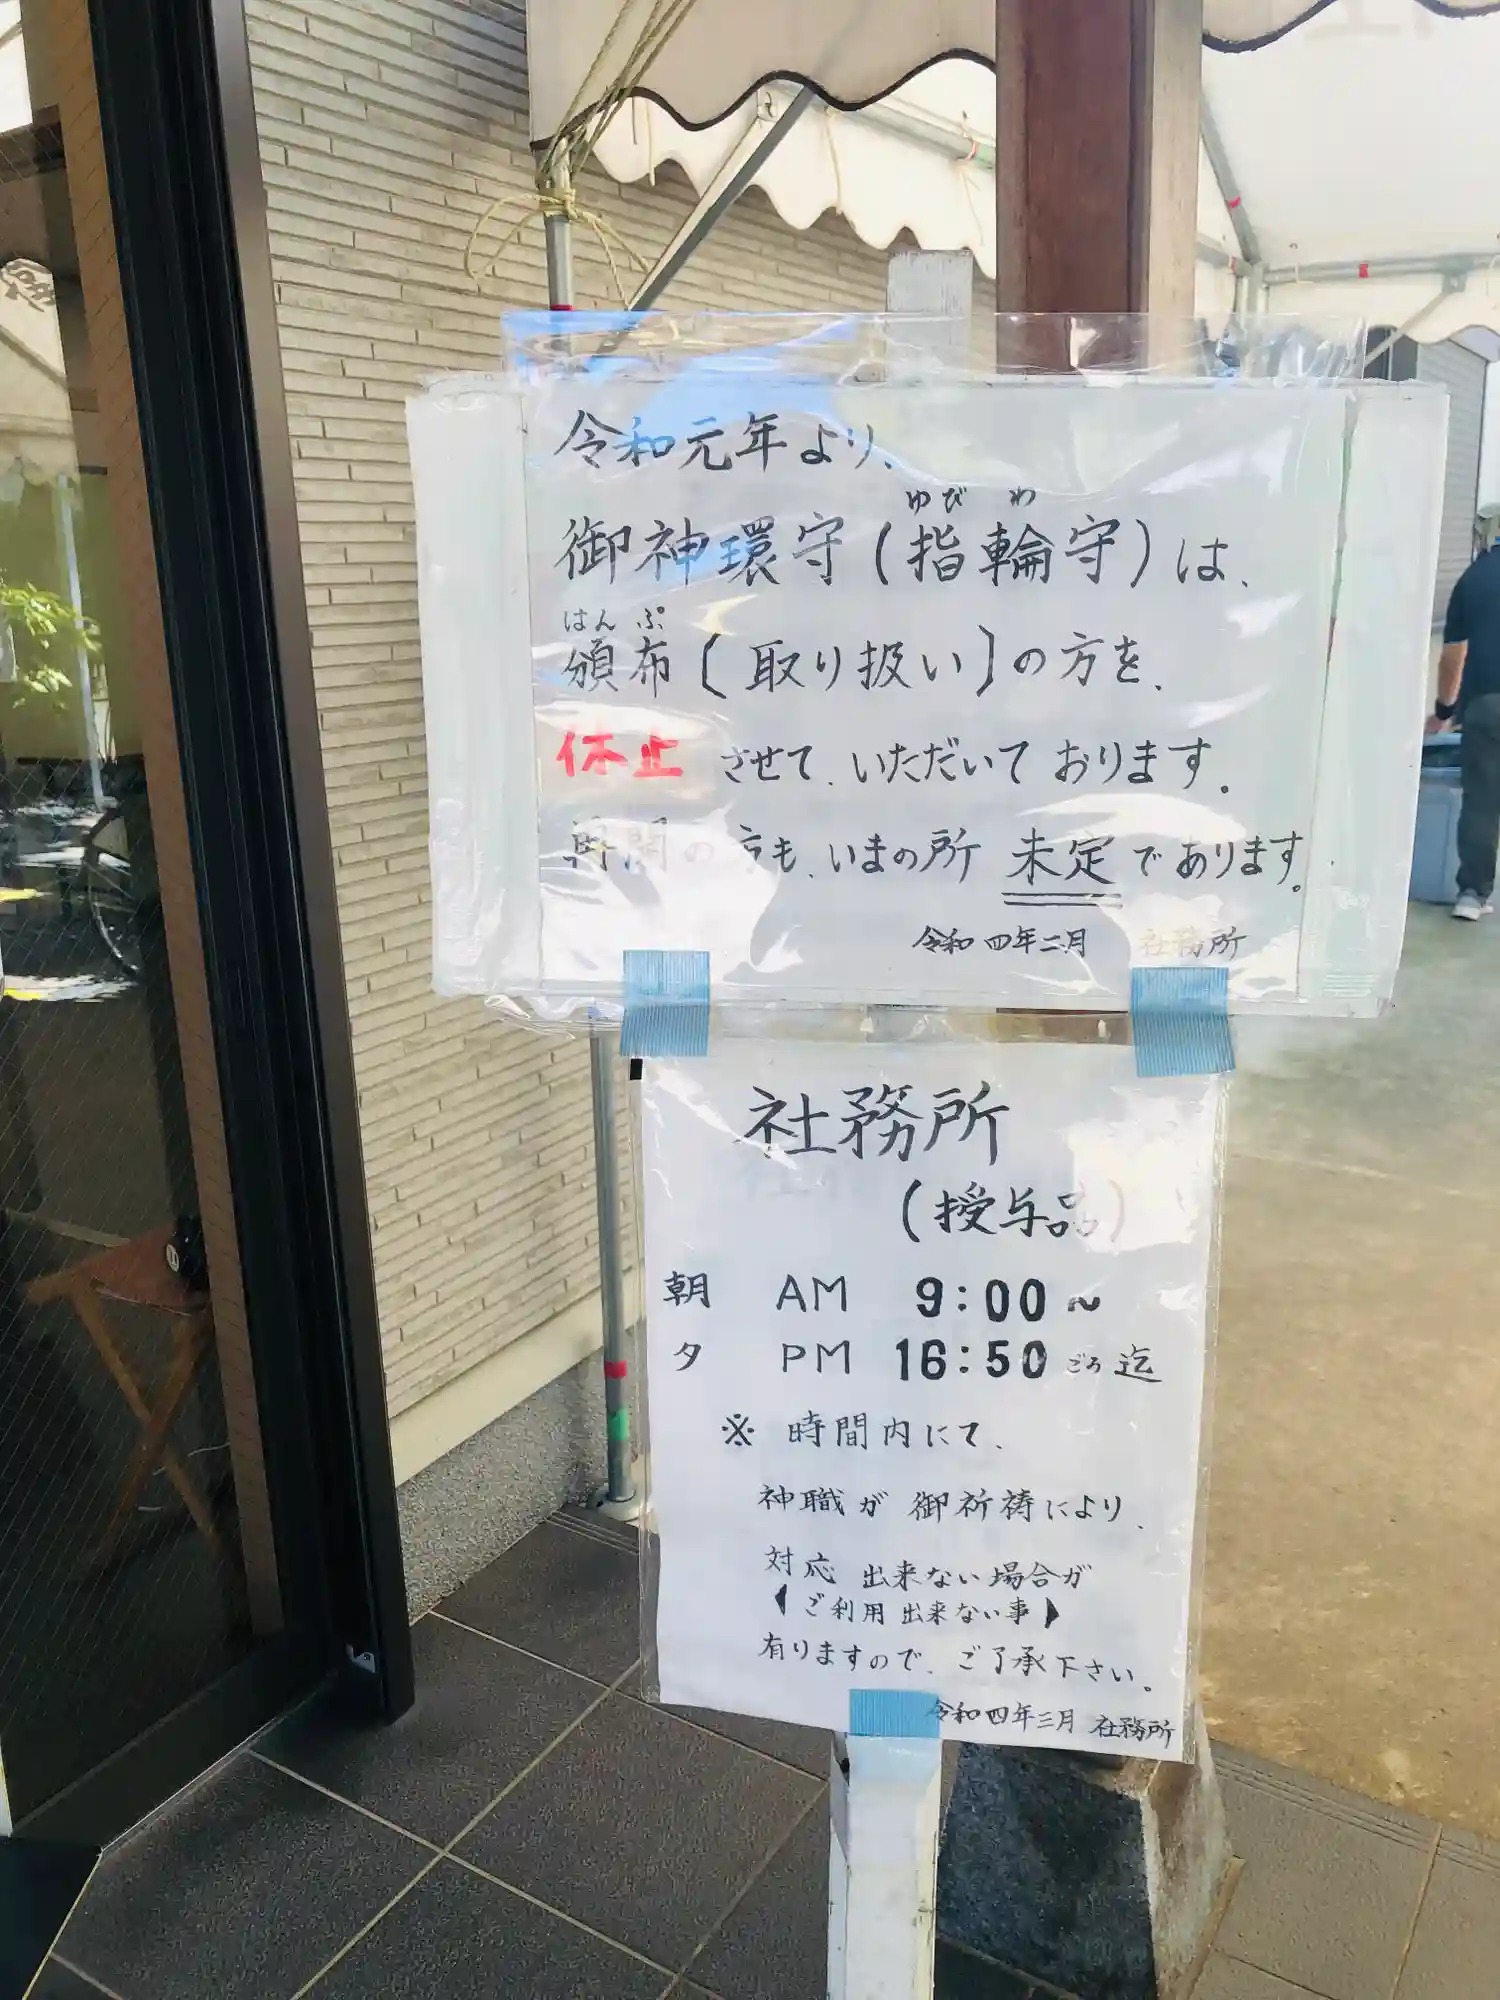 令和元年より、
ゆびわ
御神環守(指輪守)は、
はんぷ
頒布[取り扱い]の方を、
休止させて、いただいております。
再開の方も、いまの所 未定であります。
令和四年二月 社務所
社務所
(授与品)
朝 AM 9:00~
夕 PM 16:50ごろ迄
※ 時間内にて、
神職が御祈祷により、
対応出来ない場合が
(ご利用出来ない事)
有りますので、ご了承下さい。
令和四年三月 社務所